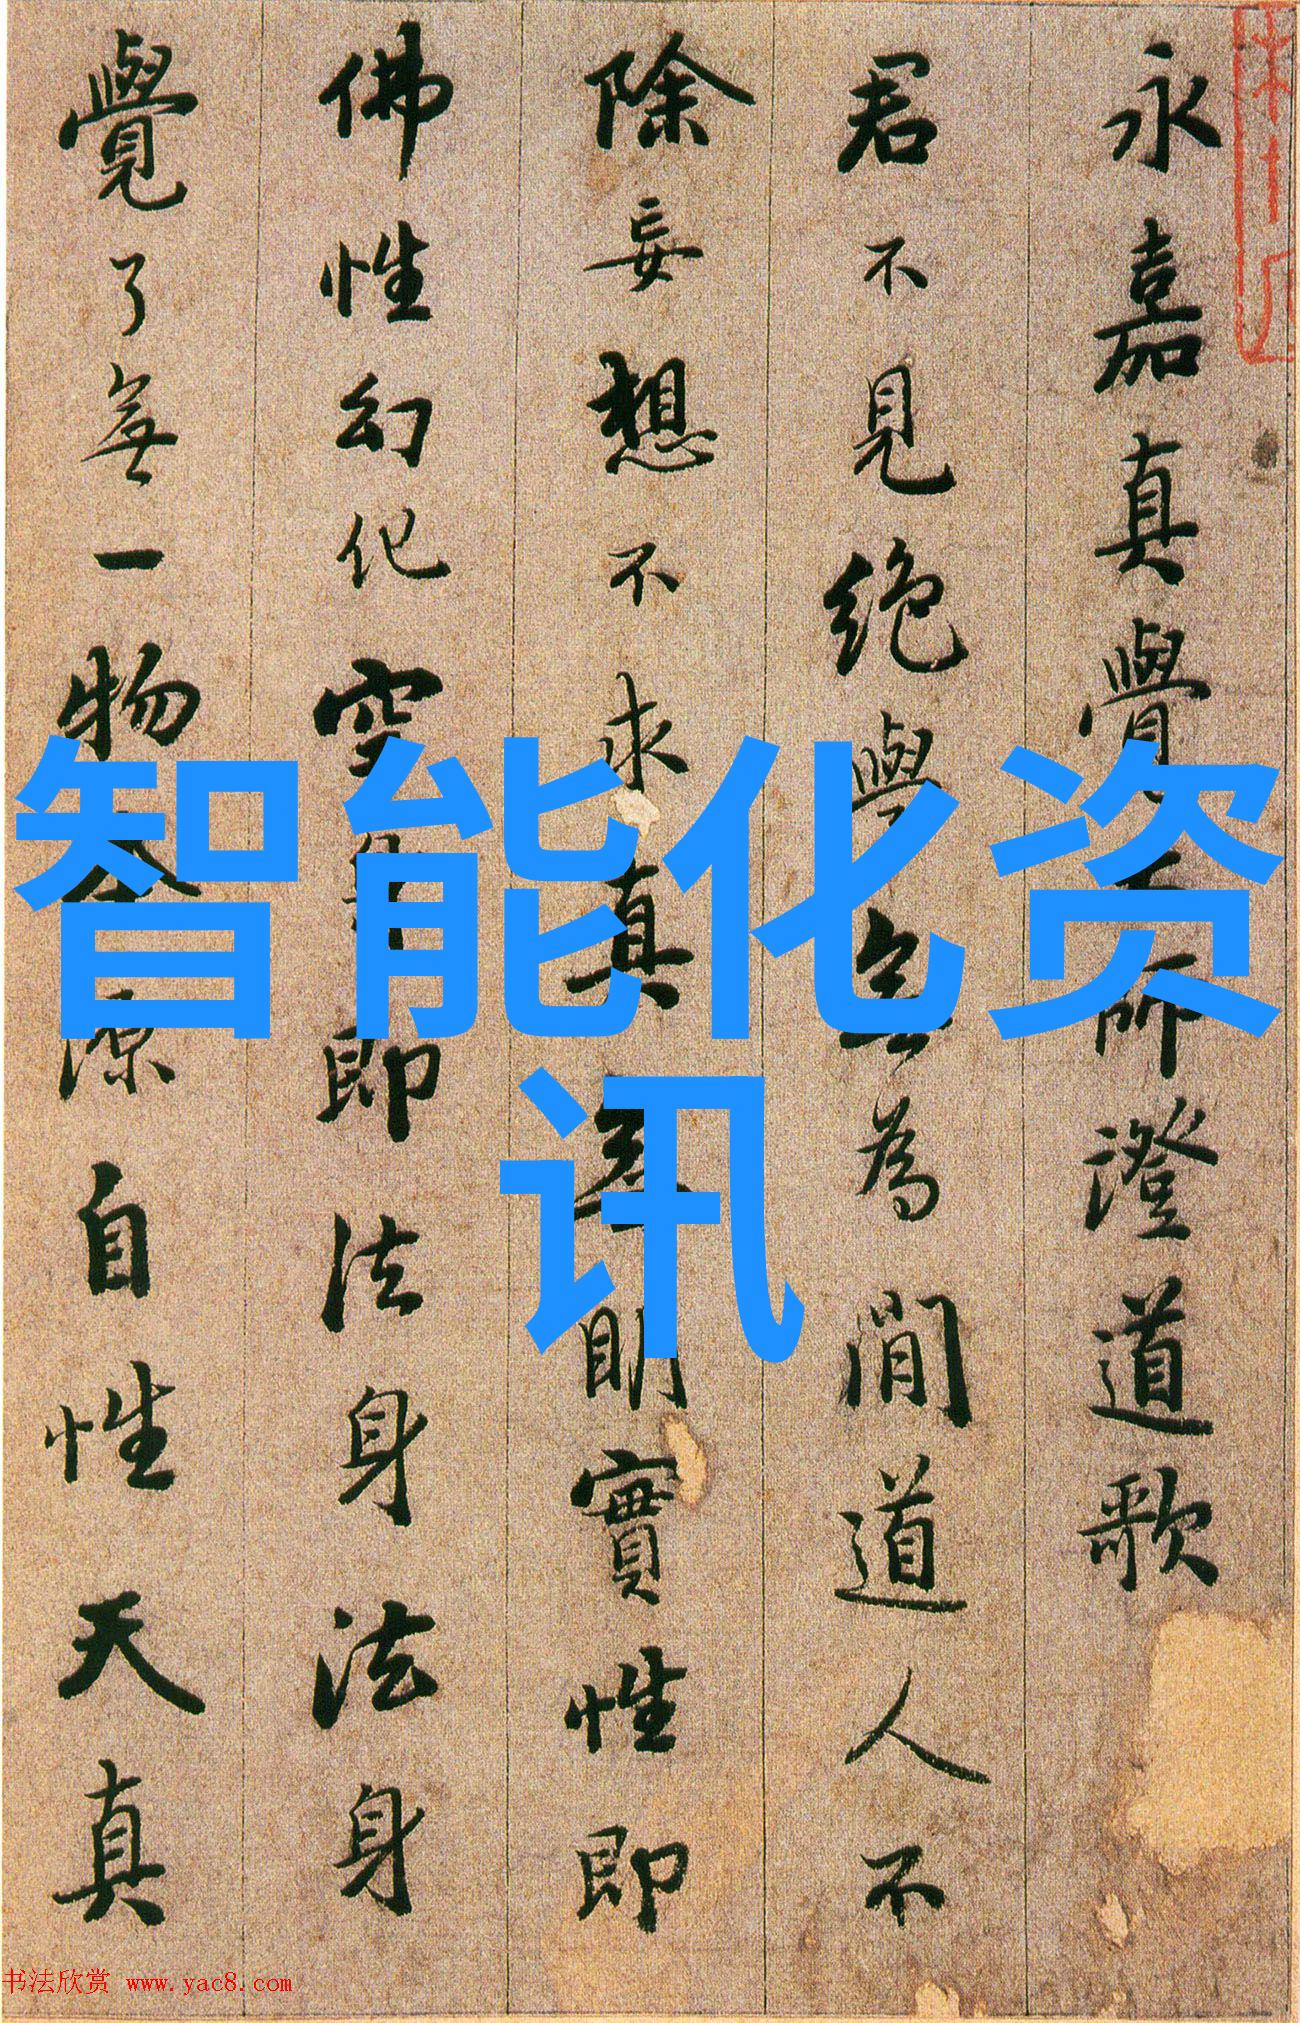 永嘉真覺大師澄道歌
君不見絶學無為閒道人不
除妄想不求真無明實性即
佛性幻化空身即法身法身
覺了無一物本源自性天真
智能化资
讯
书法欣赏 www.yac8.com